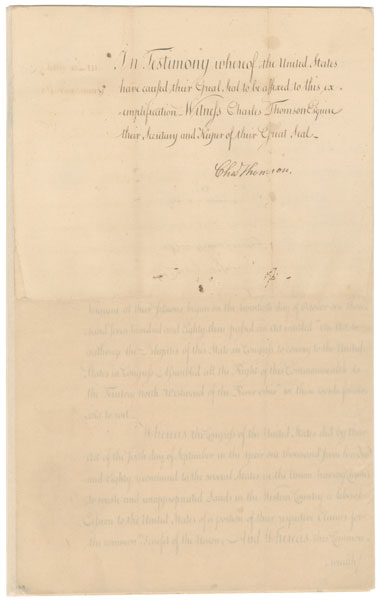 In Testimony whereof the United States
have caused their Great Seal to be affixed to this ex-
emplification Witness Charles Thomson Esquire
their Secretary and Keeper of their Great Seal
Chas Thomson.
begun on the twentieth day of
sand seven hundred and Eighty three passed an Act entitled "An Act to
authorize the Delegates of this State in Congress to convey to the United
States in Congress Assembled all the Right of this Commonwealth to
the Territory North Westward of the River Ohio" in these words follow-
ing to wit.
Whereas the Congress of the United States did by their
Act of the sixth day of September in the year one thousand seven hundred
and Eighty recommend to the several States in the Union having Claims
to waste and unappropriated Lands in the Western Country a liberal
Cession to the United States of a portion of their respective Claims for
the common Benefit of the Union, And Whereas this Common
wealth